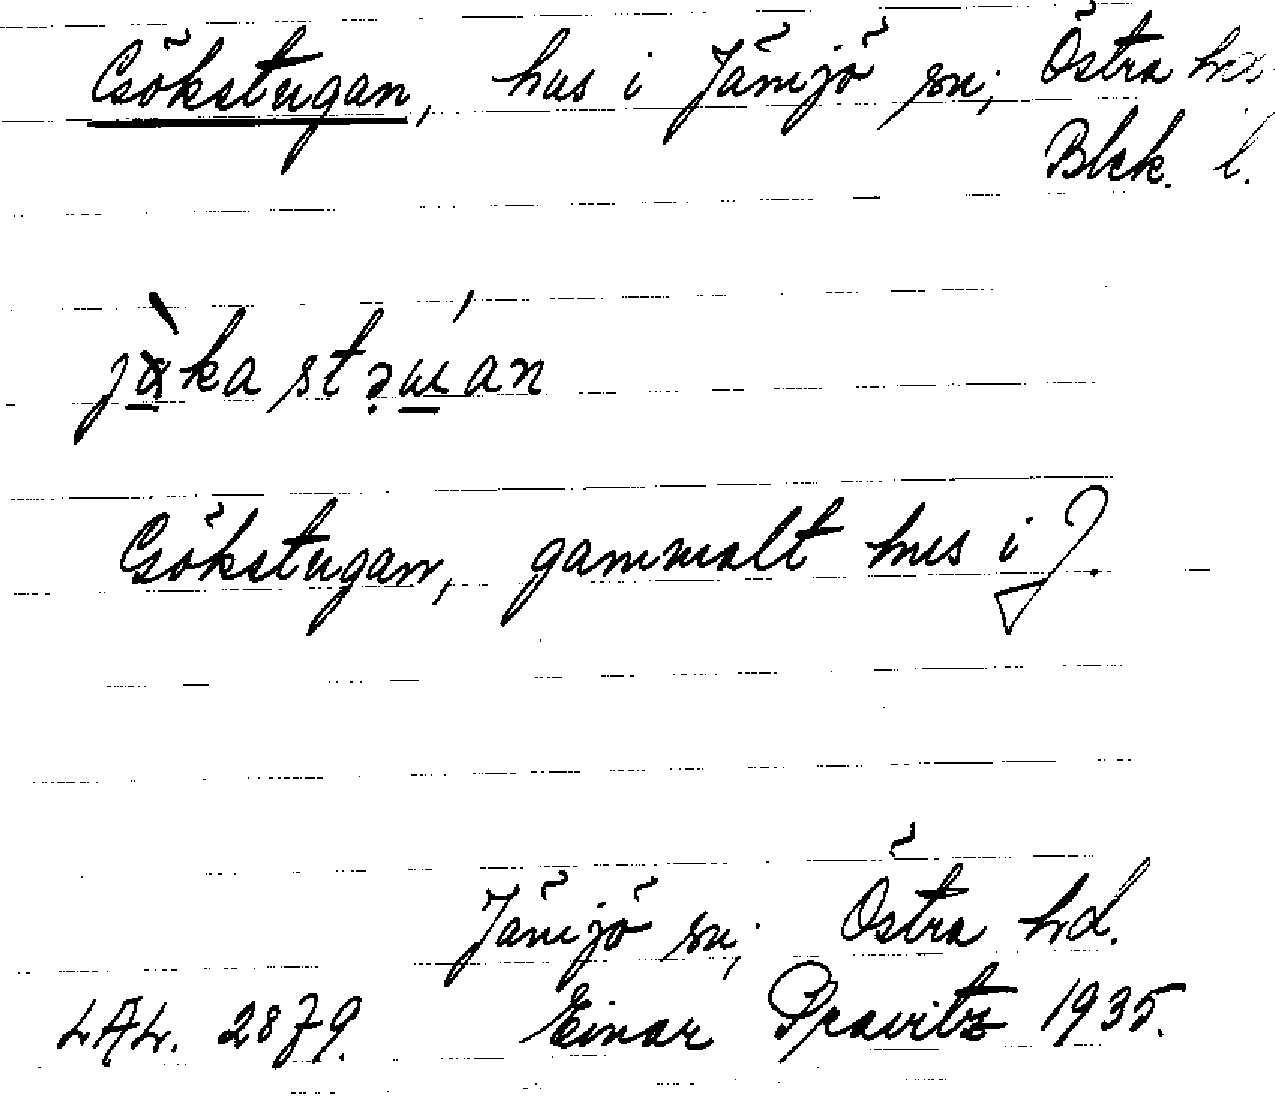 Gökstugan, hus i Jämjö sn; Östra hd
Blek. l.
Gökstugan, gammalt hus i J.
Jämjö sn; Östra hd.
LAL. 2879. Einar Pravitz 1935.